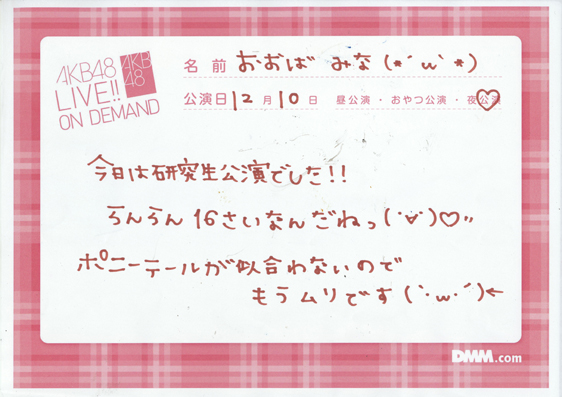 AKB48
LIVE!!
ON DEMAND
AKB
48
名前 おおば みな (*´ω`*)
公演日 12月10日 昼公演・おやつ公演・夜公演
今日は研究生公演でした!!
らんらん16さいなんだねっ(˙∀˙)♡〃
ポニーテールが似合わないので
もうムリです(`･ω･´)←
DMM.com